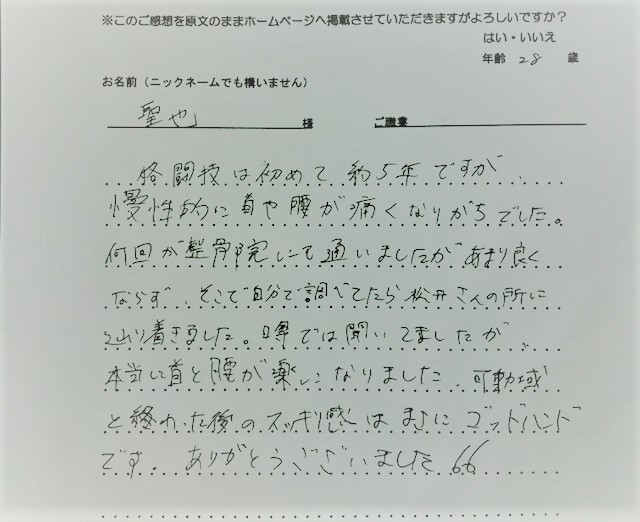 ※このご感想を原文のままホームページへ掲載させていただきますがよろしいですか？
はい・いいえ
年齢 28 歳
お名前（ニックネームでも構いません）
聖也 様 ご職業
格闘技は初めて約5年ですが
慢性的に首や腰が痛くなりがちでした。
何回か整骨院にも通いましたがあまり良く
ならず、そこで自分で調べてたら松井さんの所に
辿り着きました。噂では聞いてましたが、
本当に首と腰が楽になりました、可動域
と終わった後のスッキリ感はまさにゴッドハンド
です。ありがとうございました